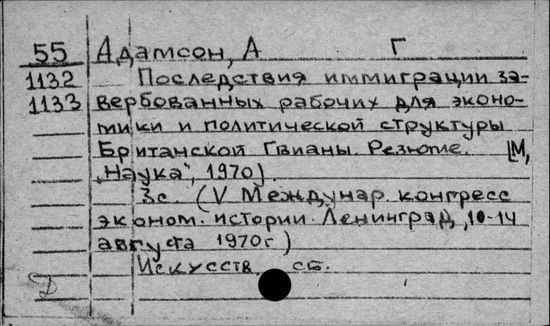 55 Адамсон, А Г
1132 Последствия иммиграции за-
1133 вербованных рабочих для эконо-
мики и политической структуры
Британской Гвианы. Резюме. [М,
„Наука", 1970].
3с. (V Междунар. конгресс
эконом. истории. Ленинград, 10-14
августа 1970г)
Искусств. сб.
Д